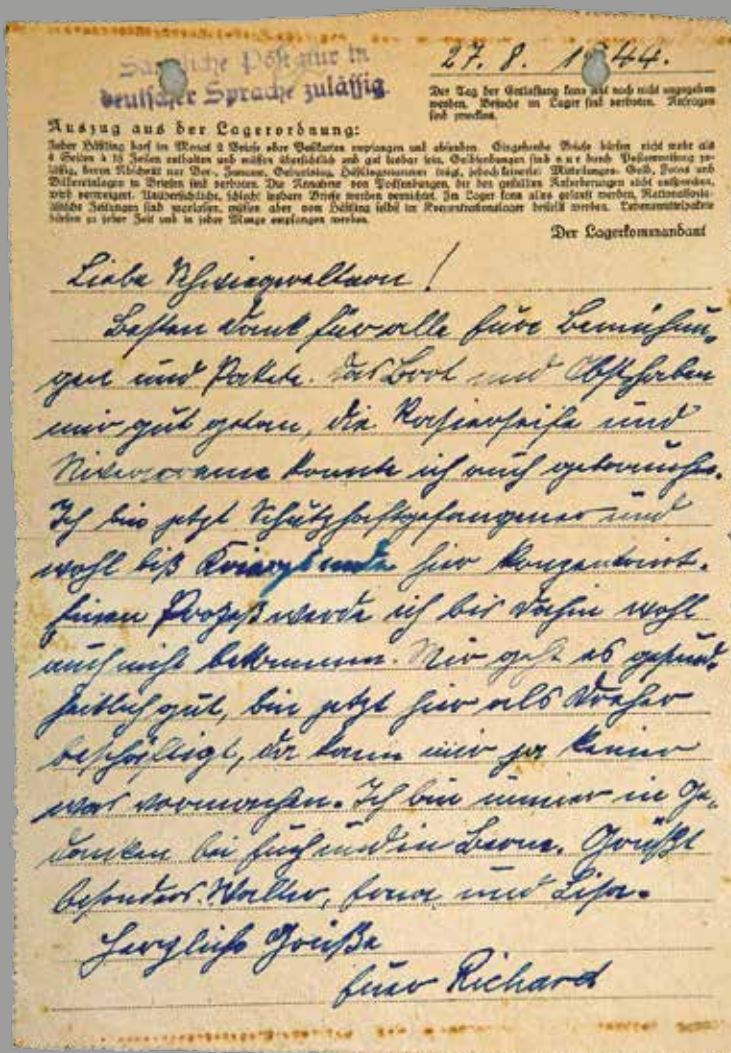 Sämtliche Post nur in
deutscher Sprache zulässig
27. 8. 1944.
Der Tag der Entlassung kann jetzt noch nicht angegeben
werden. Besuche im Lager sind verboten. Anfragen
sind zwecklos.
Auszug aus der Lagerordnung:
Jeder Häftling darf im Monat 2 Briefe oder Postkarten empfangen und absenden. Eingehende Briefe dürfen nicht mehr als
4 Seiten à 15 Zeilen enthalten und müssen übersichtlich und gut lesbar sein. Geldsendungen sind nur durch Postanweisung zu-
lässig, deren Abschnitt nur Vor-, Zuname, Geburtstag, Häftlingsnummer trägt, jedoch keinerlei Mitteilungen. Geld, Fotos und
Bildereinlagen in Briefen sind verboten. Die Annahme von Postsendungen, die den gestellten Anforderungen nicht entsprechen,
wird verweigert. Unübersichtliche, schlecht lesbare Briefe werden vernichtet. Im Lager kann alles gekauft werden. Nationalsozia-
listische Zeitungen sind zugelassen, müssen aber vom Häftling selbst im Konzentrationslager bestellt werden. Lebensmittelpakete
dürfen zu jeder Zeit und in jeder Menge empfangen werden.
Der Lagerkommandant
Liebe Schwiegereltern!
Besten Dank für alle Eure Bemühun-
gen und Pakete. Das Brot und Obst haben
mir gut getan, die Rasierseife und
Niveacreme konnte ich auch gebrauchen.
Ich bin jetzt Schutzhaftgefangener und
wohl biß Kriegsende hier konzentriert.
Einen Prozeß werde ich bis dahin wohl
auch nicht bekommen. Mir geht es gesund-
heitlich gut, bin jetzt hier als Dreher
beschäftigt, da kann mir ja keiner
was vormachen. Ich bin immer in Ge-
danken bei Euch und in Berne. Grüßt
besonders Walter, Erna und Lisa.
Herzliche Grüße
Euer Richard